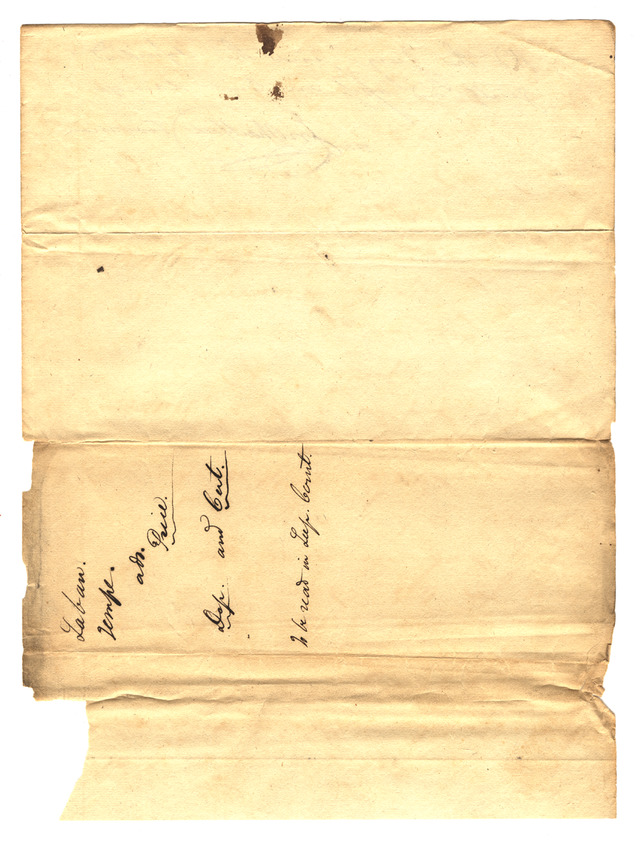 Laban.
Tempe.
ads. Price.
Dep. and Cert.
To be read in Sup. Court.